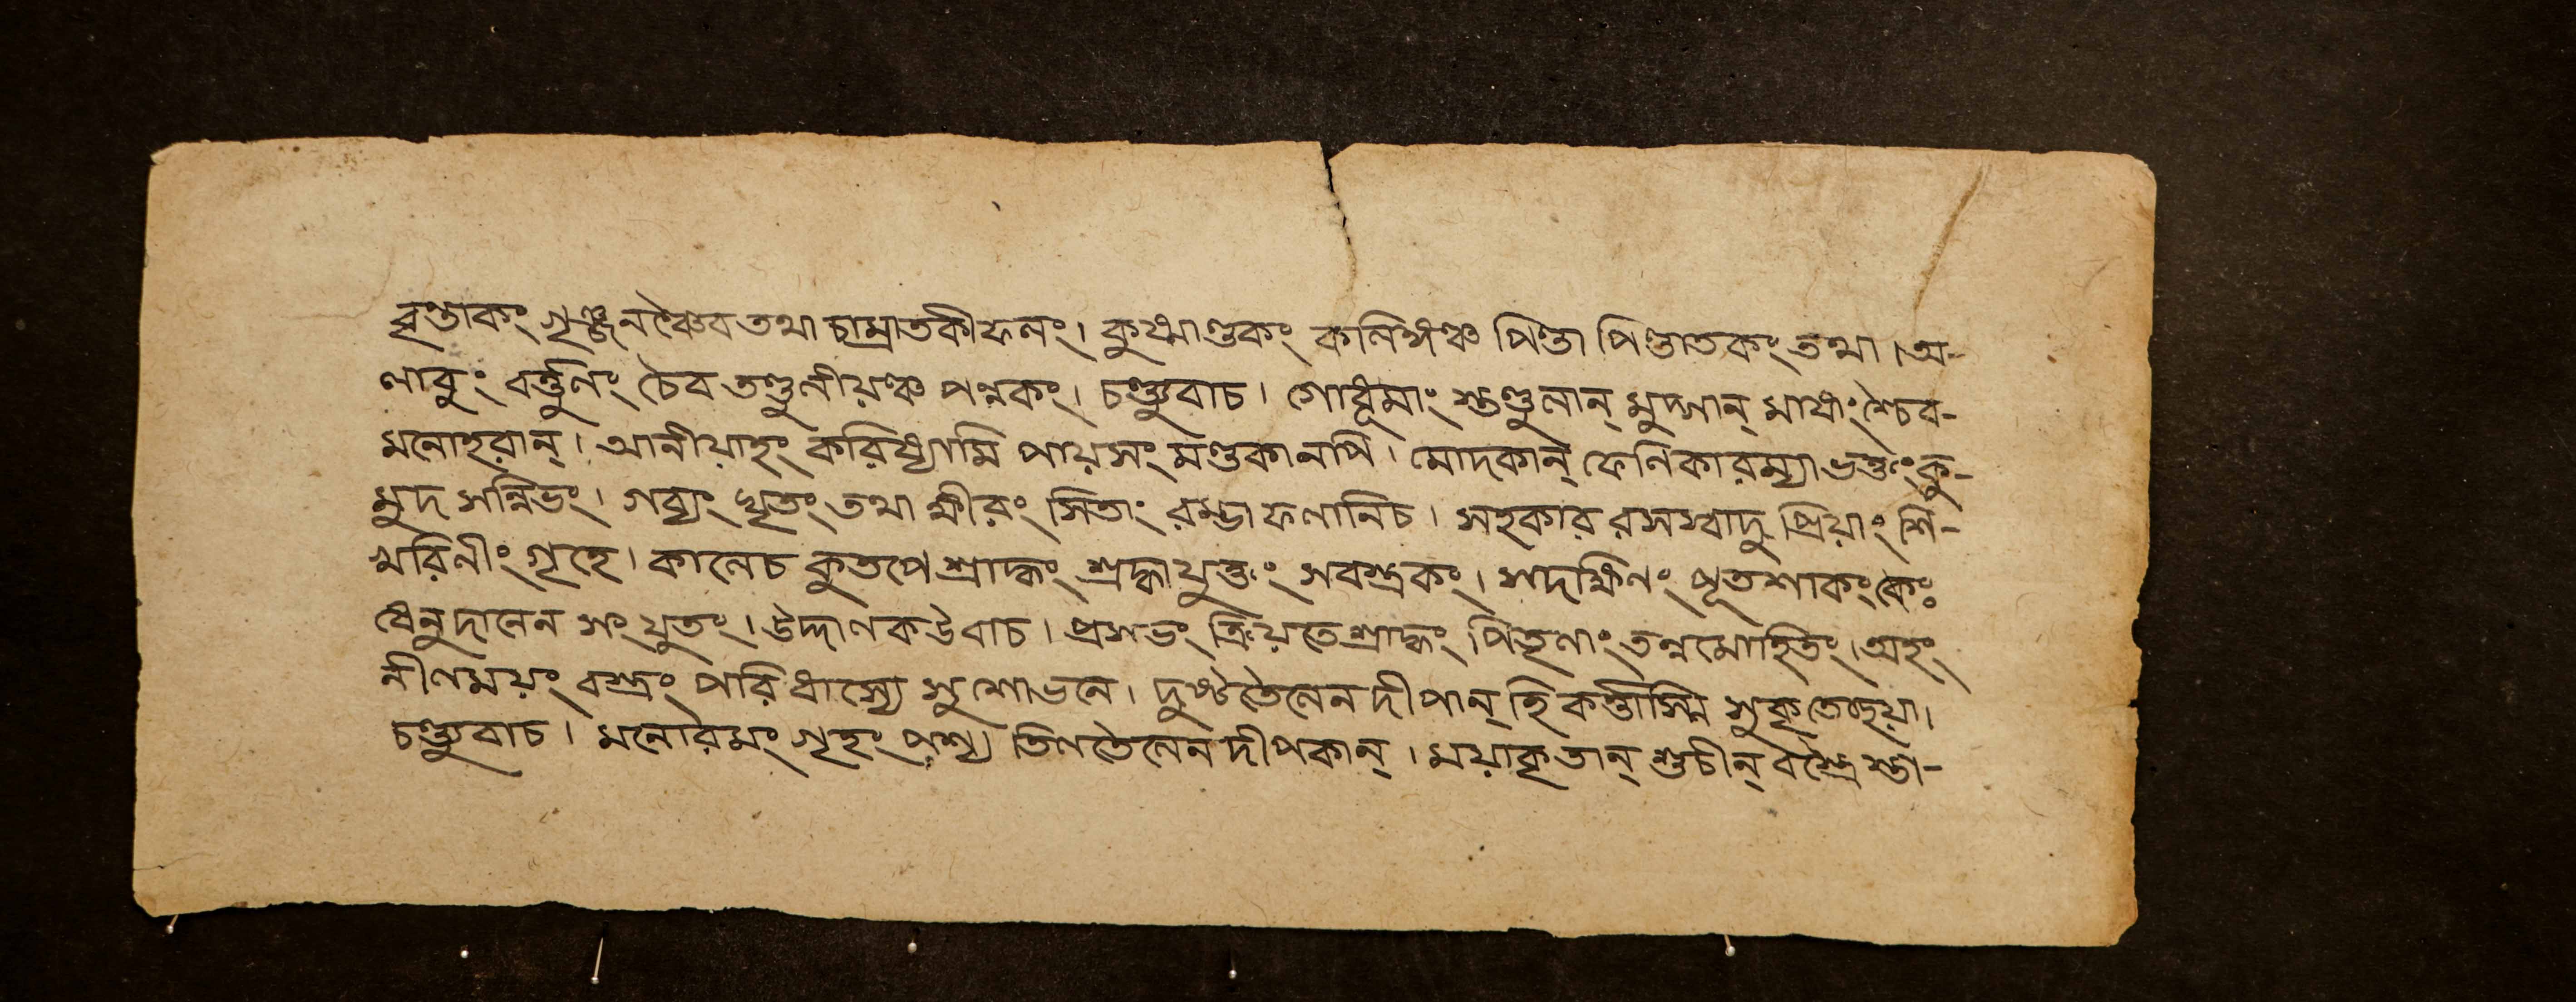 বৃন্তাকং গৃঞ্জনঞ্চৈব তথা চাম্রাতকীফলং। কুষ্মাণ্ডকং কালিঙ্গঞ্চ পিণ্ডা পিণ্ডাতকং তথা। অ-
লাবুং বর্ত্তুলং চৈব তণ্ডুলীয়ঞ্চ পত্রকং। চণ্ড্যুবাচ। গোধূমাং স্তণ্ডুলান্ মুদ্গান্ মাষাংশ্চৈব-
মনোহরান্। আনীয়াহং করিষ্যামি পায়সং মণ্ডকানপি। মোদকান্ ফেণিকারম্যাভক্তং কু-
মুদ সন্নিভং। গব্যং ঘৃতং তথা ক্ষীরং সিতাং রম্ভাফলানিচ। সহকার রসস্বাদু প্রিয়াং শি-
খরিণীং গৃহে। কালেচ কুতপে শ্রাদ্ধং শ্রদ্ধাযুক্তং সবস্ত্রকং। সদক্ষিণং পূতশাকং
ধেনুদানেন সংযুতং। উদ্দালক উবাচ। প্রসভং ক্রিয়তে শ্রাদ্ধং পিতৃণাং তন্নমোহিতং। অহং
নীলময়ং বস্ত্রং পরিধাস্যে সুশোভনে। দুষ্টতৈলেন দীপান্ হি কর্ত্তাস্মি সুকৃতেচ্ছয়া।
চণ্ড্যুবাচ। মনোরমং গৃহং পশ্য তিলতৈলেন দীপকান্। ময়াকৃতান্ শুচীন্ বস্ত্রৈ স্তা-